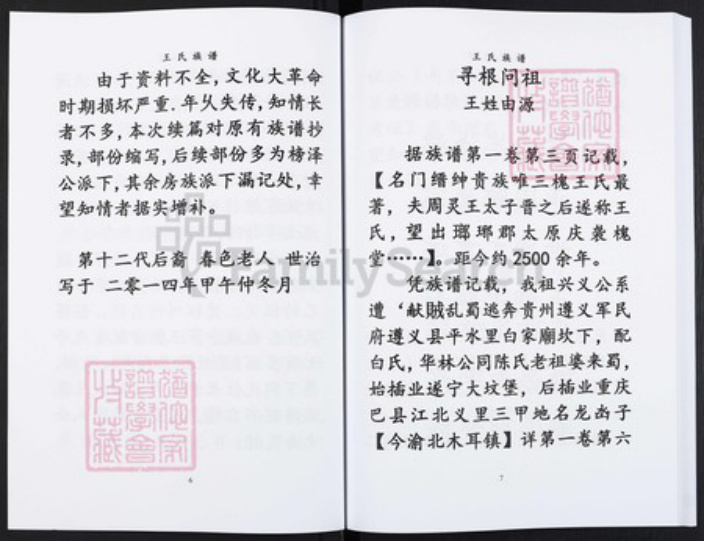 王氏族谱
由于资料不全,文化大革命
时期损坏严重.年从失传,知情长
者不多,本次续篇对原有族谱抄
录,部份缩写,后续部份多为榜泽
公派下,其余房族派下漏记处,幸
望知情者据实增补。
第十二代后裔 春色老人 世治
写于 二零一四年甲午仲冬月
6
王氏族谱
寻根问祖
王姓由源
据族谱第一卷第三页记载,
【名门缙绅贵族唯三槐王氏最
著,夫周灵王太子晋之后遂称王
氏,望出瑯琊郡太原庆袭槐
堂……】。距今约2500余年。
凭族谱记载,我祖兴义公系
遭‘献贼乱蜀逃奔贵州遵义军民
府遵义县平水里白家廟坎下,配
白氏,华林公同陈氏老祖婆来蜀,
始插业遂宁大坟堡,后插业重庆
巴县江北义里三甲地名龙凼子
【今渝北木耳镇】详第一卷第六
7
FamilySearch